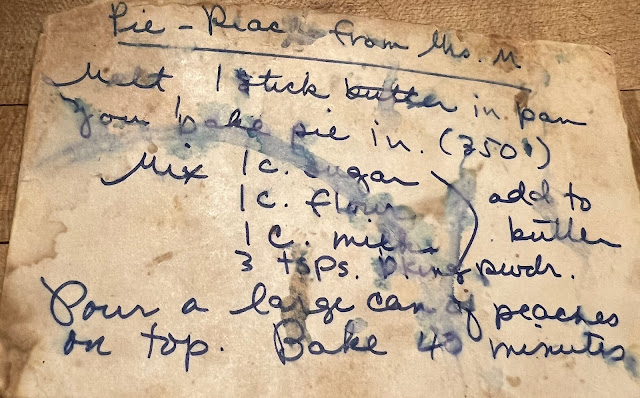 Pie - Peac from Mrs. M
Melt 1 stick butter in pan
you bake pie in. (350°)
Mix 1 c. sugar
1 c. flour add to
1 c. milk butter
3 tsps. bking pwdr.
Pour a large can of peaches
on top. Bake 40 minutes